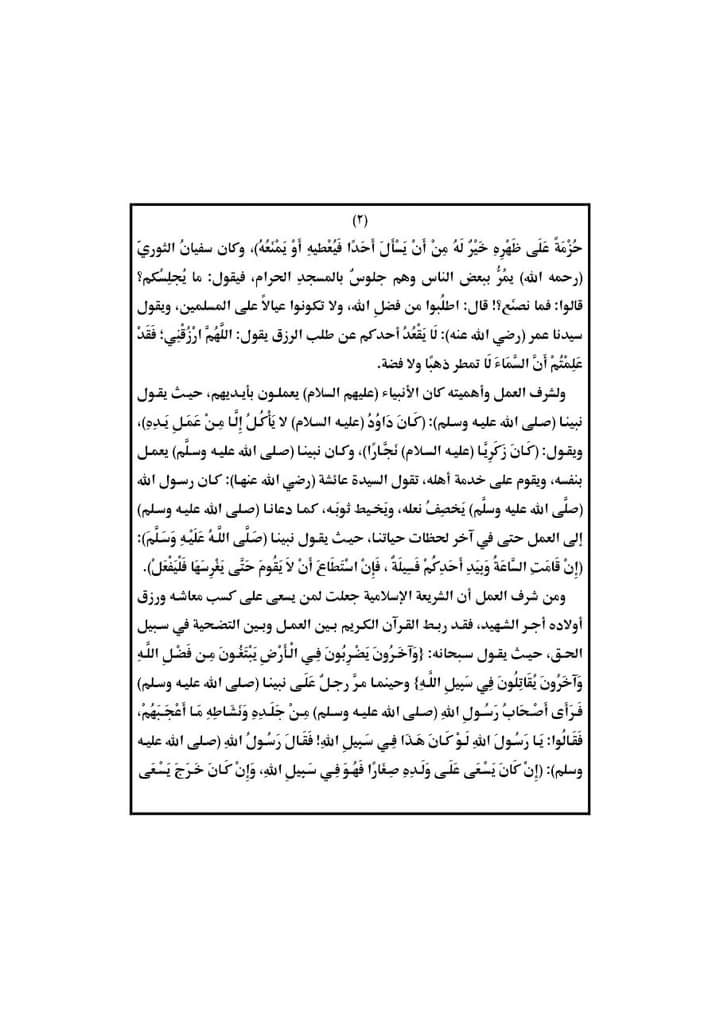 (٢)
حُزْمَةً عَلَى ظَهْرِهِ خَيْرٌ لَهُ مِنْ أَنْ يَسْأَلَ أَحَدًا فَيُعْطِيهِ أَوْ يَمْنَعُهُ)، وكان سفيانُ الثوريّ
(رحمه الله) يمُرُّ ببعض الناس وهم جلوسٌ بالمسجدِ الحرام، فيقول: ما يُجلِسُكم؟
قالوا: فما نصنَع؟! قال: اطلُبوا من فضلِ الله، ولا تكونوا عيالاً على المسلمين، ويقول
سيدنا عمر (رضي الله عنه): لَا يَقْعُدُ أحدكم عن طلب الرزق يقول: اللَّهُمَّ ارْزُقْنِي؛ فَقَدْ
عَلِمْتُمْ أَنَّ السَّمَاءَ لَا تمطر ذهبًا ولا فضة.
ولشرف العمل وأهميته كان الأنبياء (عليهم السلام) يعملون بأيديهم، حيث يقول
نبينا (صلى الله عليه وسلم): (كَانَ دَاوُدُ (عليه السلام) لا يَأْكُلُ إِلَّا مِنْ عَمَلِ يَدِهِ)،
ويقول: (كَانَ زَكَرِيَّا (عليه السلام) نَجَّارًا)، وكان نبينا (صلى الله عليه وسلَّم) يعمل
بنفسه، ويقوم على خدمة أهله، تقول السيدة عائشة (رضي الله عنها): كان رسول الله
(صلَّى الله عليه وسلَّم) يَخصِفُ نعله، ويَخيط ثوبَه، كما دعانا (صلى الله عليه وسلم)
إلى العمل حتى في آخر لحظات حياتنا، حيث يقول نبينا (صَلَّى اللَّهُ عَلَيْهِ وَسَلَّمَ):
(إِنْ قَامَتِ السَّاعَةُ وَبِيَدِ أَحَدِكُمْ فَسِيلَةٌ ، فَإِنْ اسْتَطَاعَ أَنْ لاَ يَقُومَ حَتَّى يَغْرِسَهَا فَلْيَفْعَلْ).
ومن شرف العمل أن الشريعة الإسلامية جعلت لمن يسعى على كسب معاشه ورزق
أولاده أجر الشهيد، فقد ربط القرآن الكريم بين العمل وبين التضحية في سبيل
الحق، حيث يقول سبحانه: {وَآخَرُونَ يَضْرِبُونَ فِي الْأَرْضِ يَبْتَغُونَ مِن فَضْلِ اللَّهِ
وَآخَرُونَ يُقَاتِلُونَ فِي سَبِيلِ اللَّهِ} وحينما مرَّ رجلٌ عَلَى نبينا (صلى الله عليه وسلم)
فَرَأَى أَصْحَابُ رَسُولِ اللهِ (صلى الله عليه وسلم) مِنْ جَلَدِهِ وَنَشَاطِهِ مَا أَعْجَبَهُمْ،
فَقَالُوا: يَا رَسُولَ اللهِ لَوْ كَانَ هَذَا فِي سَبِيلِ اللهِ! فَقَالَ رَسُولُ اللهِ (صلى الله عليه
وسلم): (إِنْ كَانَ يَسْعَى عَلَى وَلَدِهِ صِغَارًا فَهُوَ فِي سَبِيلِ اللهِ، وَإِنْ كَانَ خَرَجَ يَسْعَى